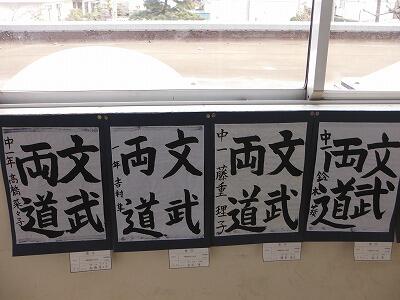 文武
両道
中一年 高橋 菜々子
文武
両道
一年 吉村 隼
文武
両道
中一 藤重 理子
文武
両道
中一 鈴木